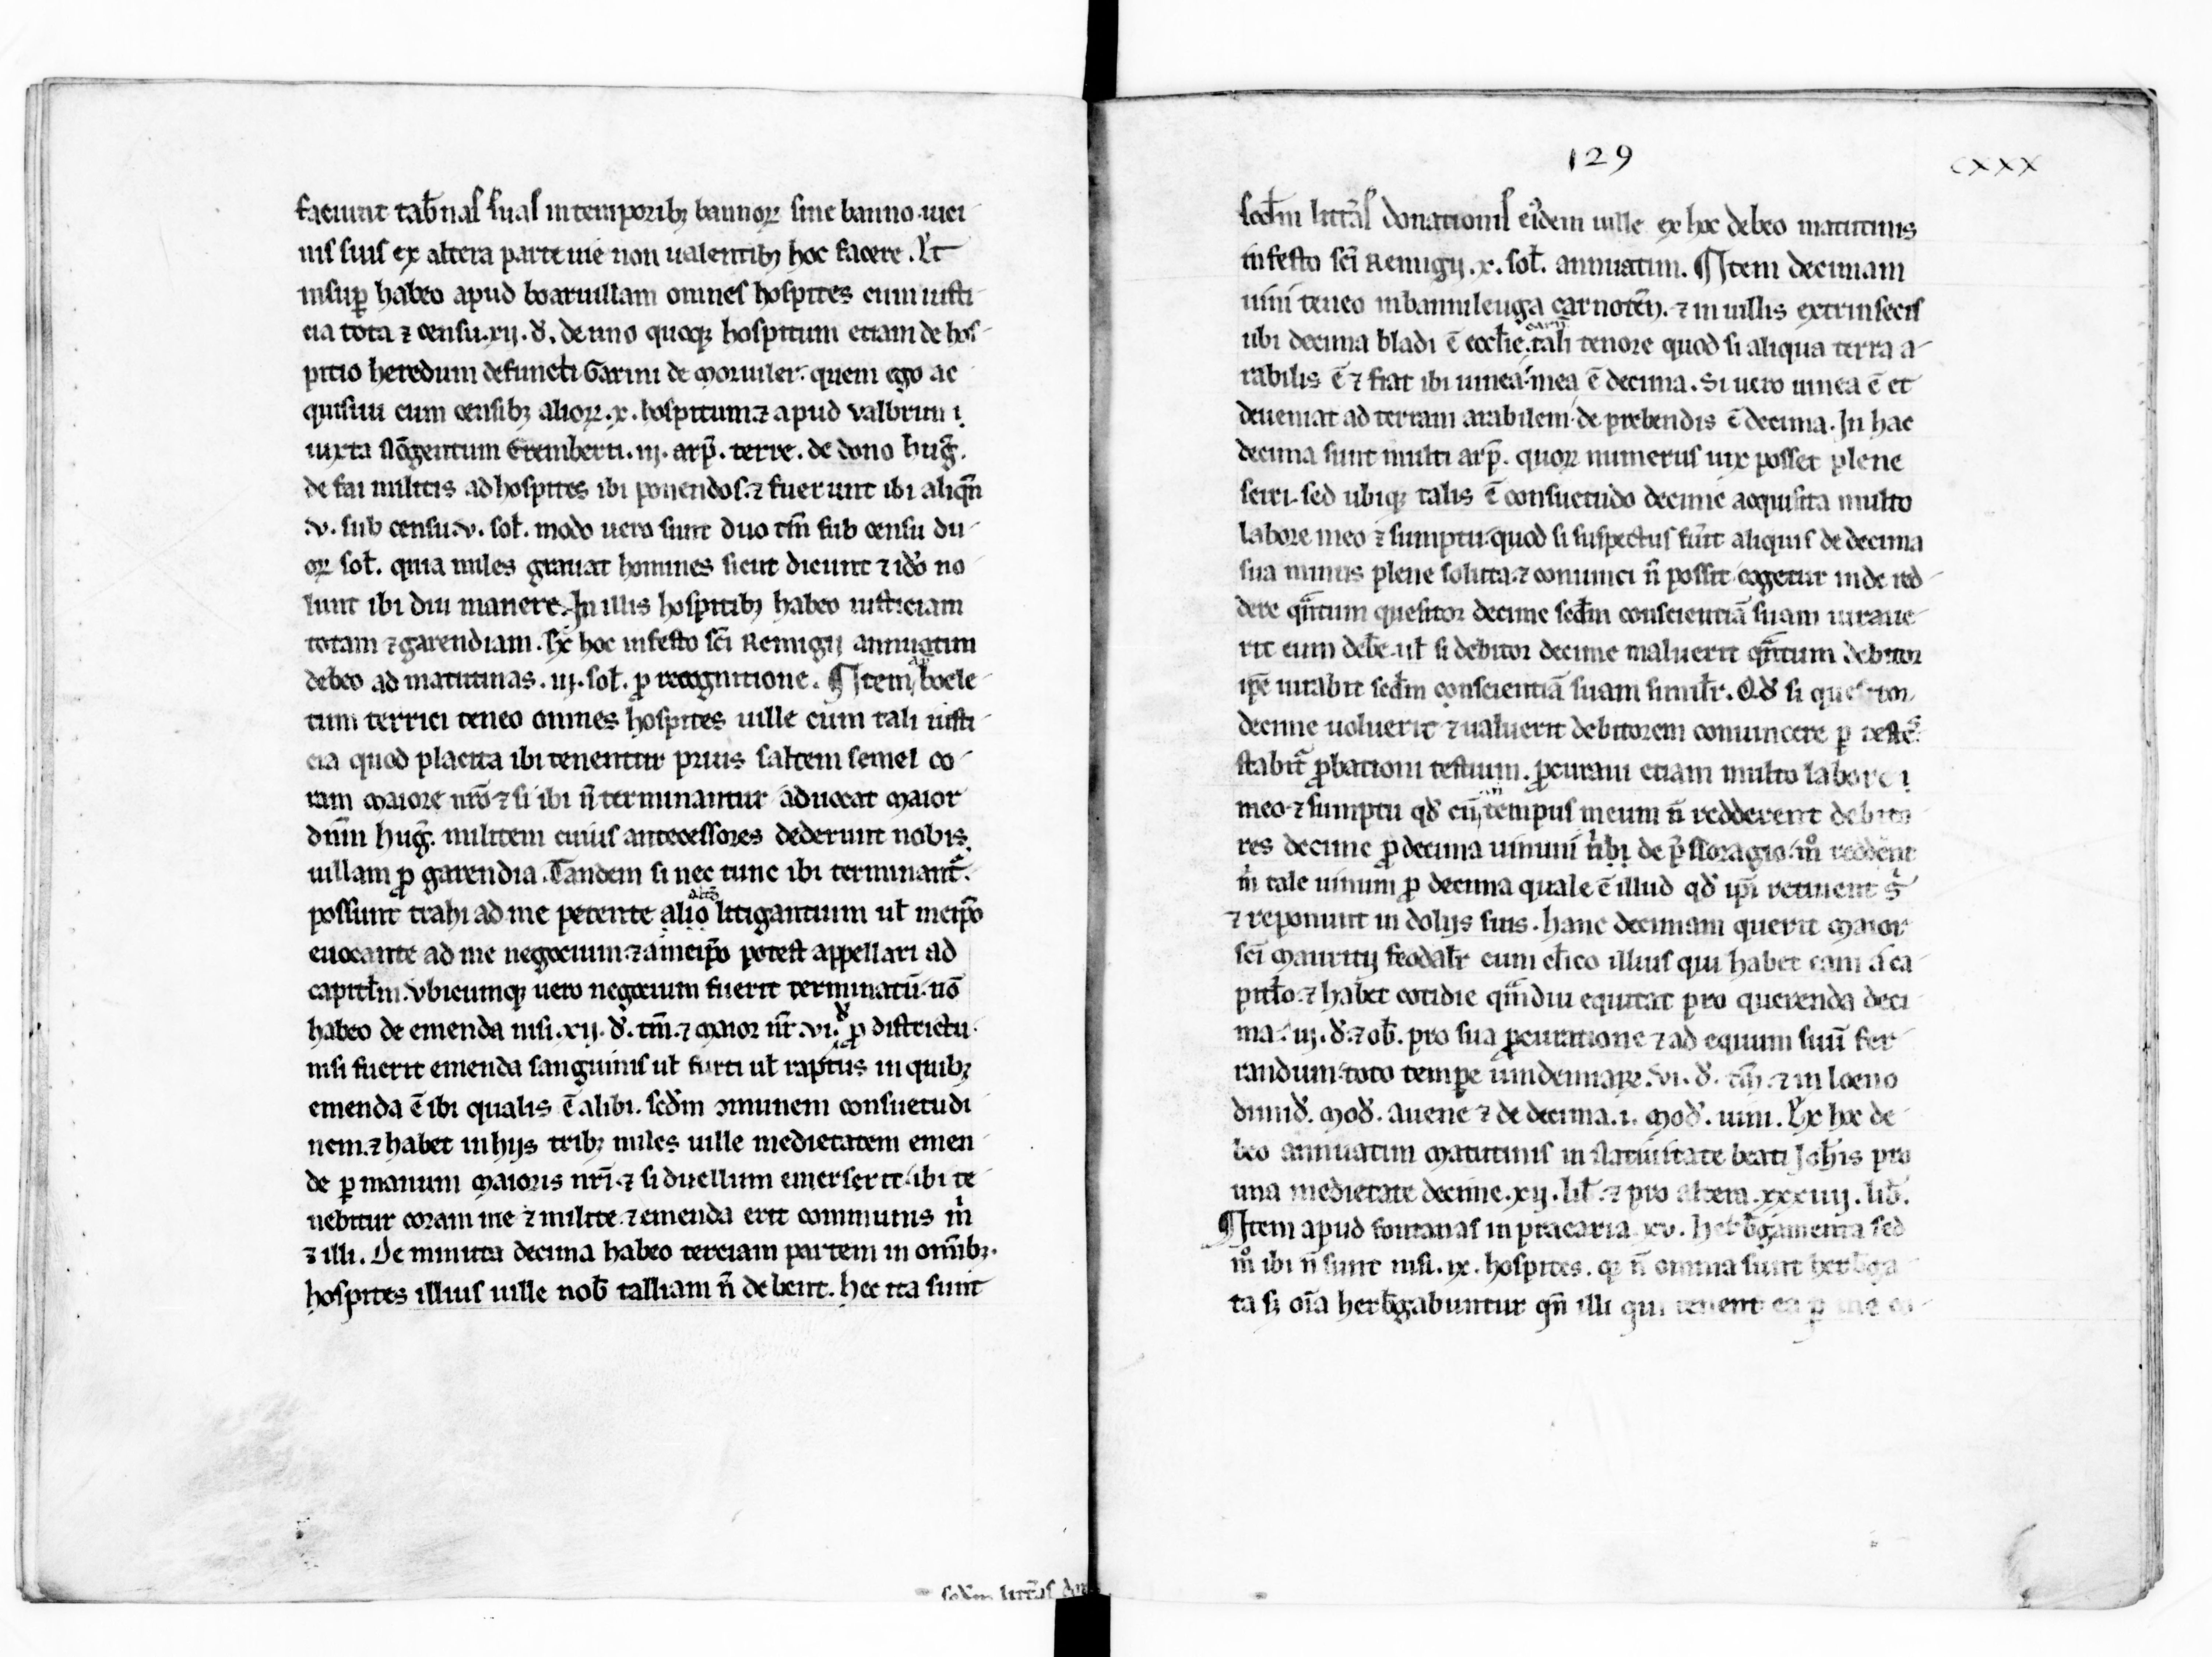 faciunt tab̄nas suas in temporibꝫ bannoꝝ sine banno uici
nis suis ex altera parte uie non ualentibꝫ hoc facere. Et
insuꝑ habeo apud boaruillam omnes hospites cum iusti
cia tota ⁊ censu .xij. đ. de uno quoqꝫ hospitum etiam de hos
pitio heredum defuncti Garini de Moruiler. quem ego ac
quisiui cum censibꝫ alioꝝ .x. hospitum. ⁊ apud valbrun
iuxta Nōgentum Eremberti .iij. arp̄. terre. de dono hug̃.
de fai militis ad hospites ibi ponendos. ⁊ fuerunt ibi aliqn̄
.v. sub censu .v. sol̃. modo uero sunt duo tm̄ sub censu du
oꝝ sol̃. quia miles grauat homines sicut dicunt ⁊ iđo no
lunt ibi diu manere. In illis hospitibꝫ habeo iusticiam
totam ⁊ garendiam. Ex hoc in festo sc̄i Remigij annuatim
debeo ad matutinas .iij. sol̃. ꝓ recognitione. ¶ Item ap̄ boele
tum terrici teneo omnes hospites uille cum tali iusti
cia quod placita ibi tenentur prius saltem semel co
ram Maiore nr̄o ⁊ si ibi n̄ terminantur aduocat Maior
dn̄m hug̃. militem cuius antecessores dederunt nobis
uillam ꝓ garendia. Tandem si nec tunc ibi terminant᷑.
possunt trahi ad me petente alio litigantium ul̃ meip̄o
euocante ad me negocium. ⁊ a meip̄o potest appellari ad
capitl̃m. Vbicumqꝫ uero negocium fuerit terminatū. nō
habeo de emenda nisi .xij. đ. tm̄. ⁊ Maior nr̄ .vi. đ ꝓ districtu.
nisi fuerit emenda sanguinis ul̃ furti ul̃ raptus in quibꝫ
emenda ē ibi qualis ē alibi. scđm ꝯmunem consuetudi
nem. ⁊ habet in hijs tribꝫ miles uille medietatem emen
de ꝑ manum Maioris nr̄i. ⁊ si duellum emerserit. ibi te
nebitur coram me ⁊ milite. ⁊ emenda erit communis m̄
⁊ illi. De minuta decima habeo terciam partem in om̄ibꝫ.
hospites illius uille nob̄ talliam n̄ debent. hec ita sunt
scđm litt̃as don
129
CXXX
scđm litt̃as donationis eiđem uille ex hoc debeo matutinis
in festo sc̄i Remigij .x. sol̃. annuatim. ¶ Item decimam
uini teneo in bannileuga carnoteñ. ⁊ in uillis extrinsecis
ubi decima bladi ē eccl̃ie carñ. tali tenore quod si aliqua terra a
rabilis ē ⁊ fiat ibi uinea. mea ē decima. Si uero uinea ē et
deueniat ad terram arabilem. de prebendis ē decima. In hac
decima sunt multi arp̄. quoꝝ numerus uix posset plene
sciri. sed ubiqꝫ talis ē consuetudo decime acquisita multo
labore meo ⁊ sumptu. quod si suspectus fūit aliquis de decima
sua minus plene soluta. ⁊ conuinci n̄ possit. cogetur inde red
dere qn̄tum quesitor decime scđm conscientiā suam iuraue
rit eum deb̄e. ul̃ si debitor decime maluerit qn̄tum debitor
ip̄e iurabit scđm conscientiā suam simil̃r. Qđ si quesitor
decime uoluerit ⁊ ualuerit debitorem conuincere ꝑ testes.
stabit᷑ ꝓbationi testium. ꝓcuraui etiam multo labore
meo ⁊ sumptu qđ cū an̄ tempus meum n̄ redderent debito
res decime ꝓ decima uinum n̄ ibi de p̄ssoragio. m̊ reddent
m̄ tale uinum ꝓ decima quale ē illud qđ ip̄i retinent s̄
⁊ reponunt in dolijs suis. hanc decimam querit Maior
sc̄i Mauritij feodal̃r cum cl̃ico illius qui habet eam a ca
pitl̃o. ⁊ habet cotidie qm̄diu equitat pro querenda deci
ma. iij. đ. ⁊ ob̄. pro sua ꝓcuratione ⁊ ad equum suū fer
randum. toto tempe uindemiaꝝ .vi. đ. tm̄. ⁊ in loeno
dimiđ. Mođ. Auene ⁊ de decima .i. Mođ. uini. Ex hoc de
beo annuatim Matutinis in Natiuitate beati Joh̄is pro
una medietate decime .xij. lib̄. ⁊ pro altera .xxxiiij. lib̄.
¶ Item apud fontanas in pracaria .xv. herb̄gamenta sed
m̊ ibi n̄ sunt nisi .ix. hospites. qꝫ n̄ omnia sunt herb̄ga
ta sꝫ oīa herb̄gabuntur qn̄ illi qui tenent ea ꝑ me